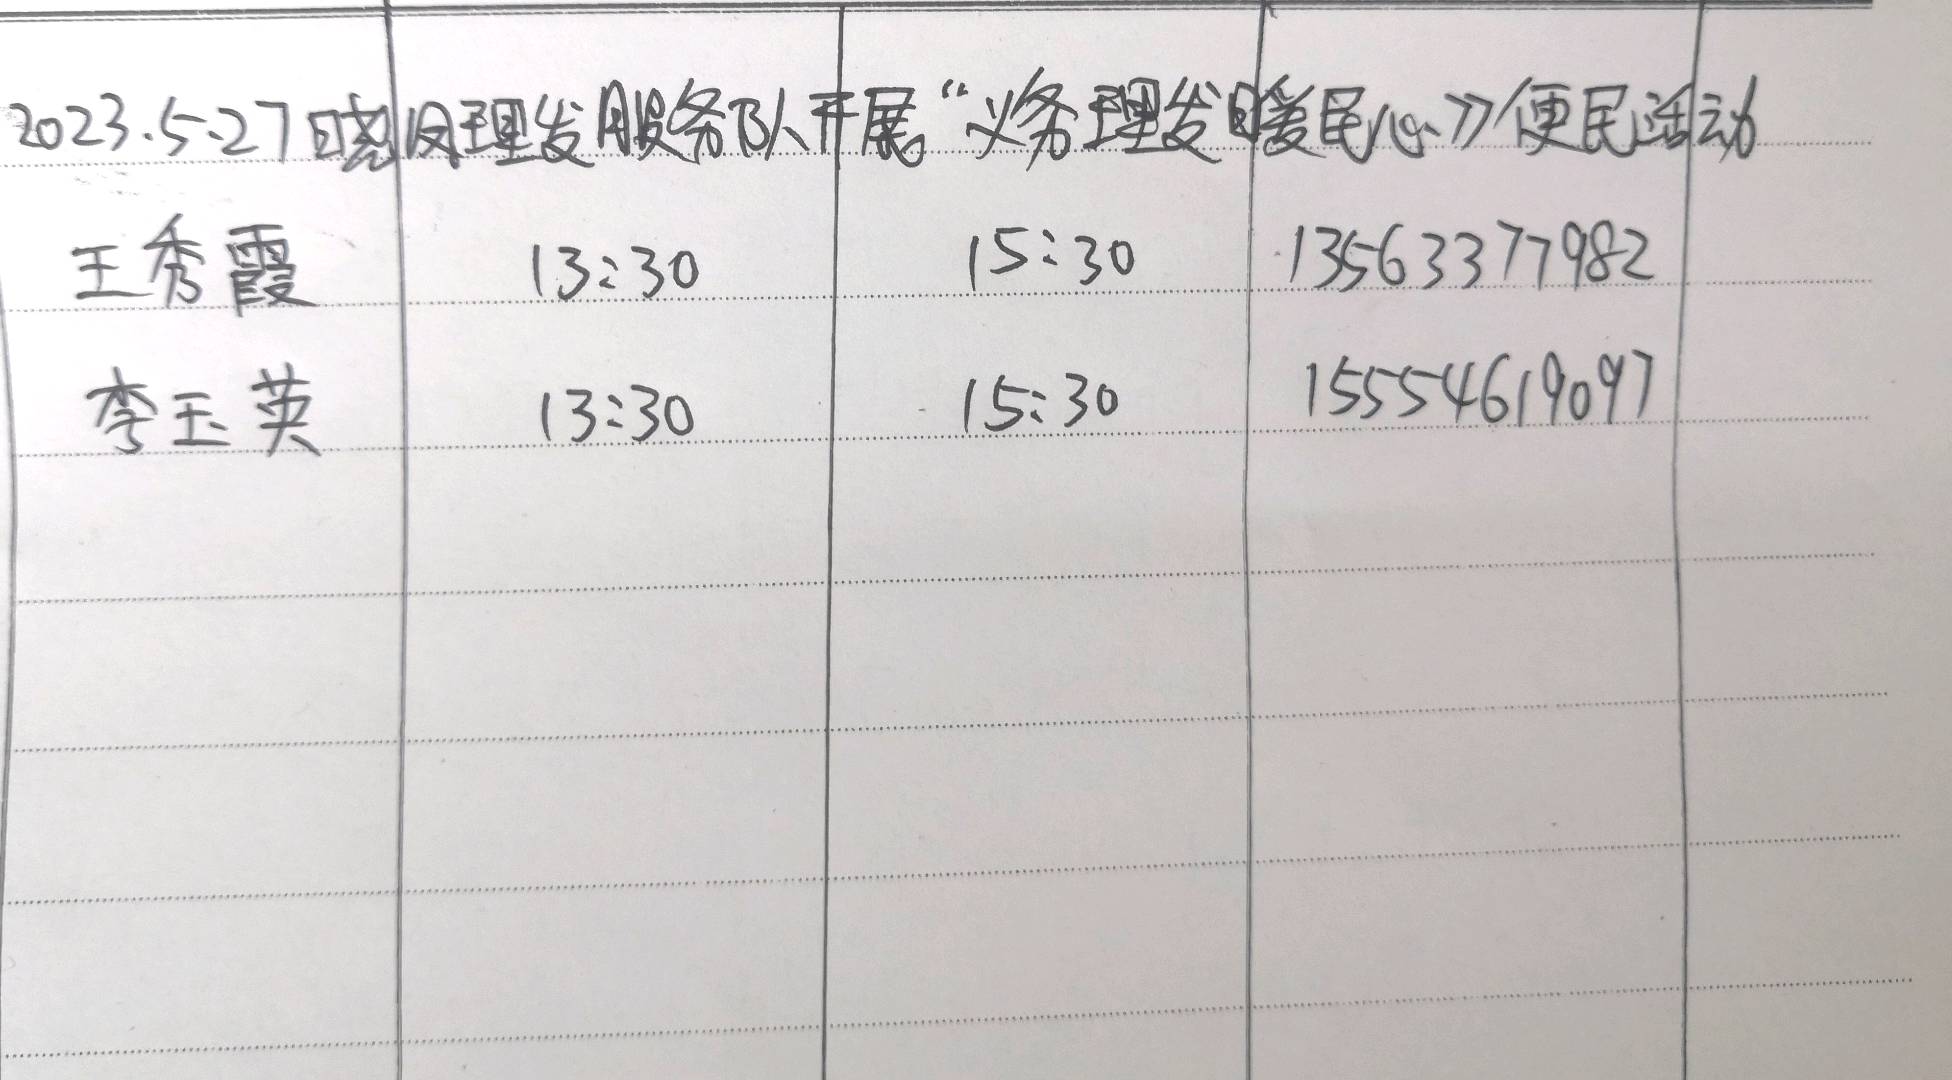 2023.5.27日晓凤理发服务队开展“义务理发暖民心》便民活动
王秀霞 13:30 15:30 13563377982
李玉英 13:30 15:30 15554619097